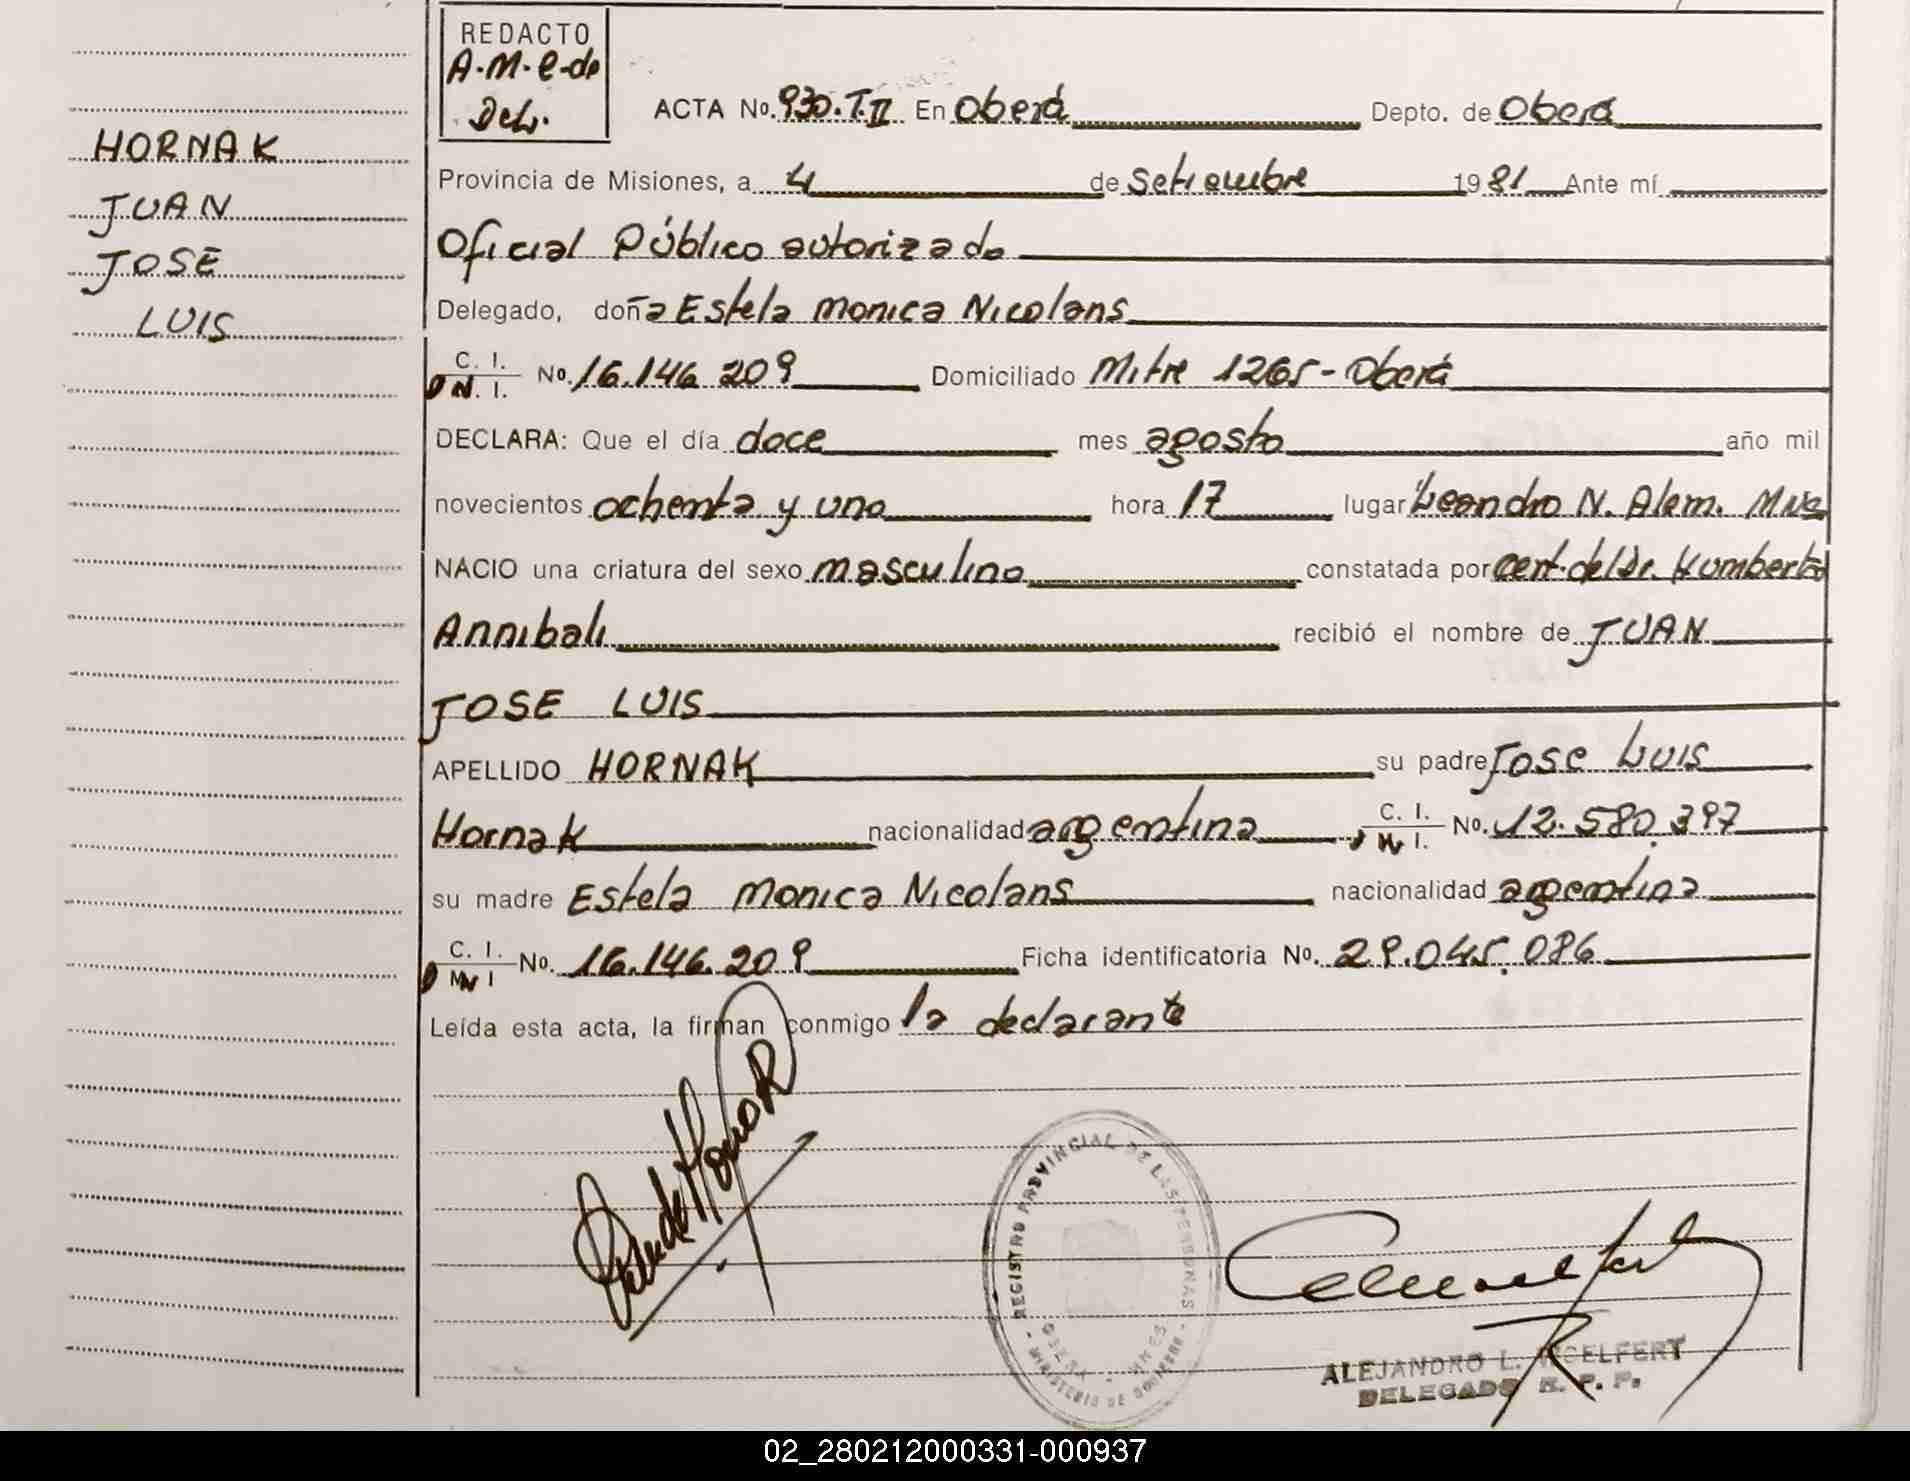 REDACTO
A.M.e.de
Del.
HORNAK
JUAN
JOSE
LUIS
ACTA No. 930.T.II En Oberá Depto. de Oberá
Provincia de Misiones, a 4 de Setiembre 1981 Ante mí
Oficial Público autorizado
Delegado, doña Estela Monica Nicolans
C. I.
D N. I. No. 16.146.209 Domiciliado Mitre 1265-Oberá
DECLARA: Que el día doce mes agosto año mil
novecientos ochenta y uno hora 17 lugar Leandro N. Alem. Mnes
NACIO una criatura del sexo masculino constatada por cert. del Dr. Humberto
Annibali recibió el nombre de JUAN
JOSE LUIS
APELLIDO HORNAK su padre Jose Luis
Hornak nacionalidad argentina C. I. No. 12.580.397
su madre Estela Monica Nicolans nacionalidad argentina
C. I. No. 16.146.209 Ficha identificatoria No. 29.045.086
Leída esta acta, la firman conmigo la declarante
REGISTRO PROVINCIAL DE LAS PERSONAS
OBERA - MNES
MINISTERIO DE GOBIERNO
ALEJANDRO L. WOELFERT
DELEGADO R. P. P.
02_280212000331-000937